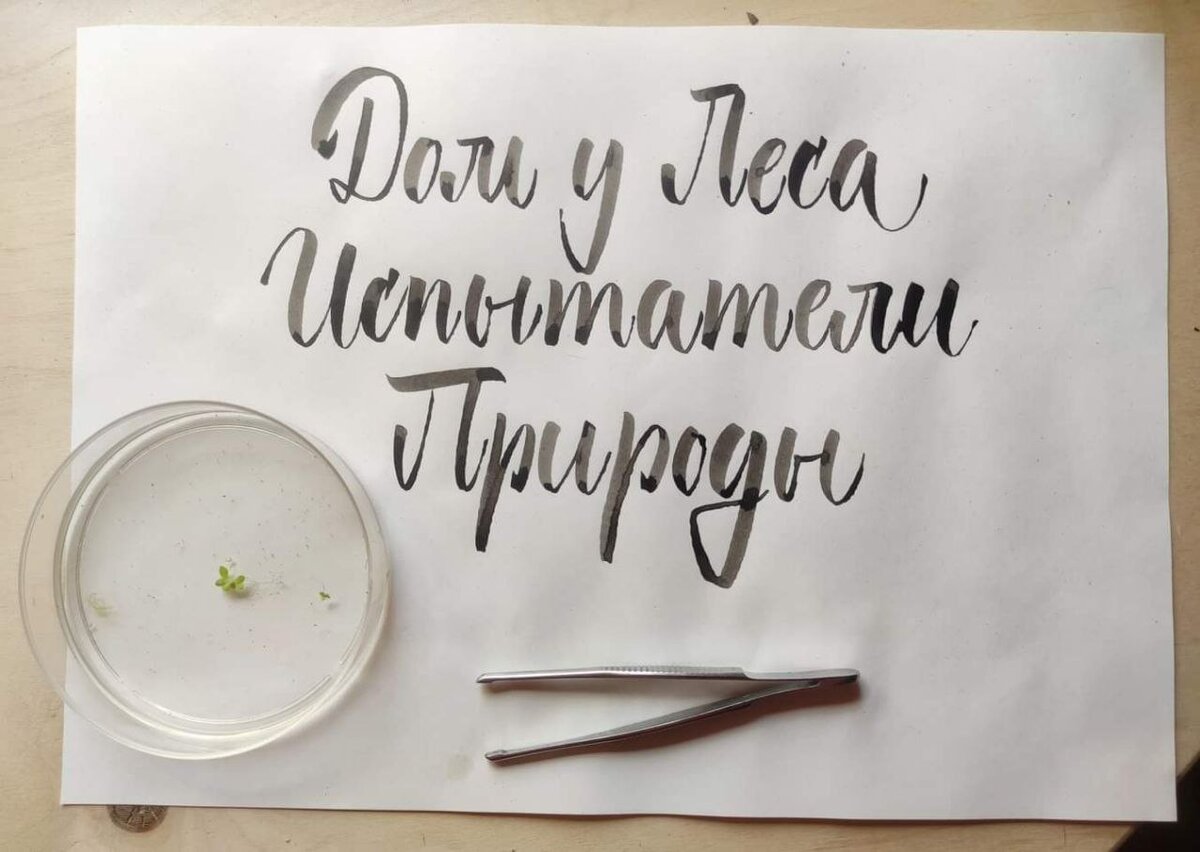 Дом у Леса
Испытатели
Природы